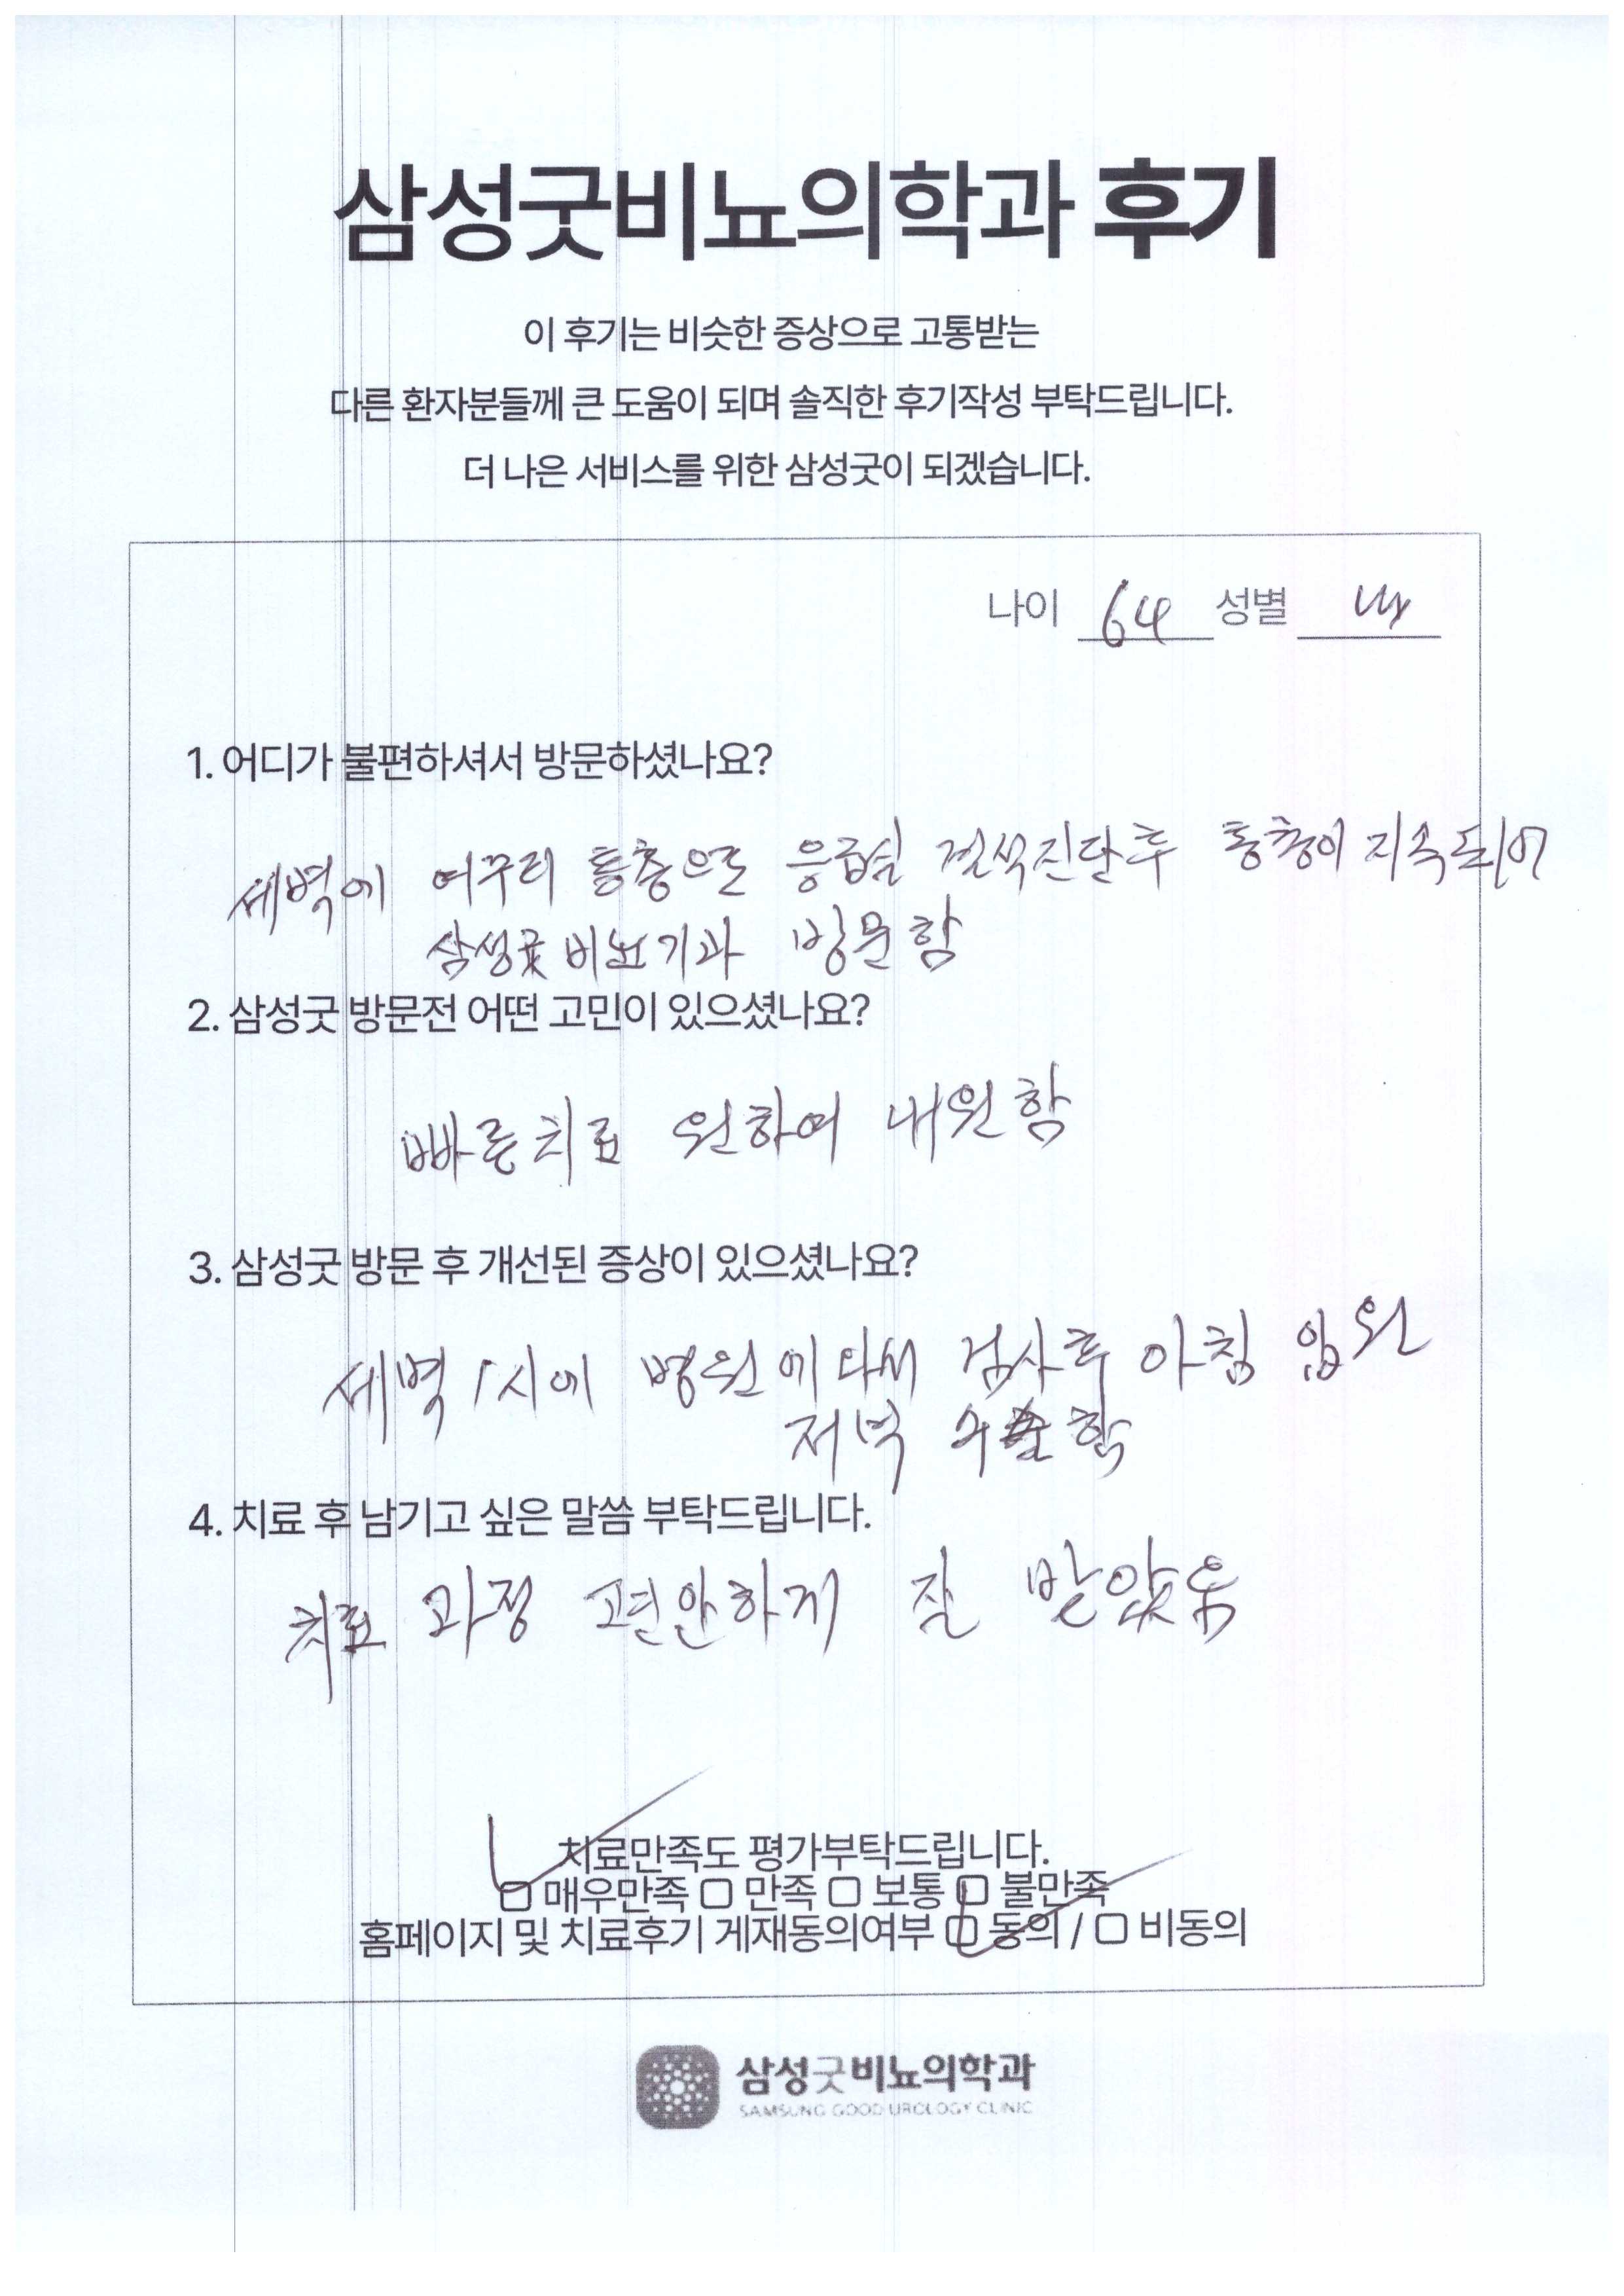 삼성굿비뇨의학과 후기
이 후기는 비슷한 증상으로 고통받는
다른 환자분들께 큰 도움이 되며 솔직한 후기작성 부탁드립니다.
더 나은 서비스를 위한 삼성굿이 되겠습니다.
나이 64 성별
1. 어디가 불편하셔서 방문하셨나요?
새벽에 여구리 통층으로 응급실 결석진단후 통층이 지속되어
삼성굿 비뇨기과 방문함
2. 삼성굿 방문전 어떤 고민이 있으셨나요?
빠른치료 원하여 내원함
3. 삼성굿 방문 후 개선된 증상이 있으셨나요?
새벽 1시에 병원에 와서 검사후 아침 입원
저녁 수술함
4. 치료 후 남기고 싶은 말씀 부탁드립니다.
치료 과정 편안하게 잘 받았음
치료만족도 평가부탁드립니다.
매우만족 만족 보통 불만족
홈페이지 및 치료후기 게재동의여부 동의 / 비동의
삼성굿비뇨의학과
SAMSUNG GOOD UROLOGY CLINIC